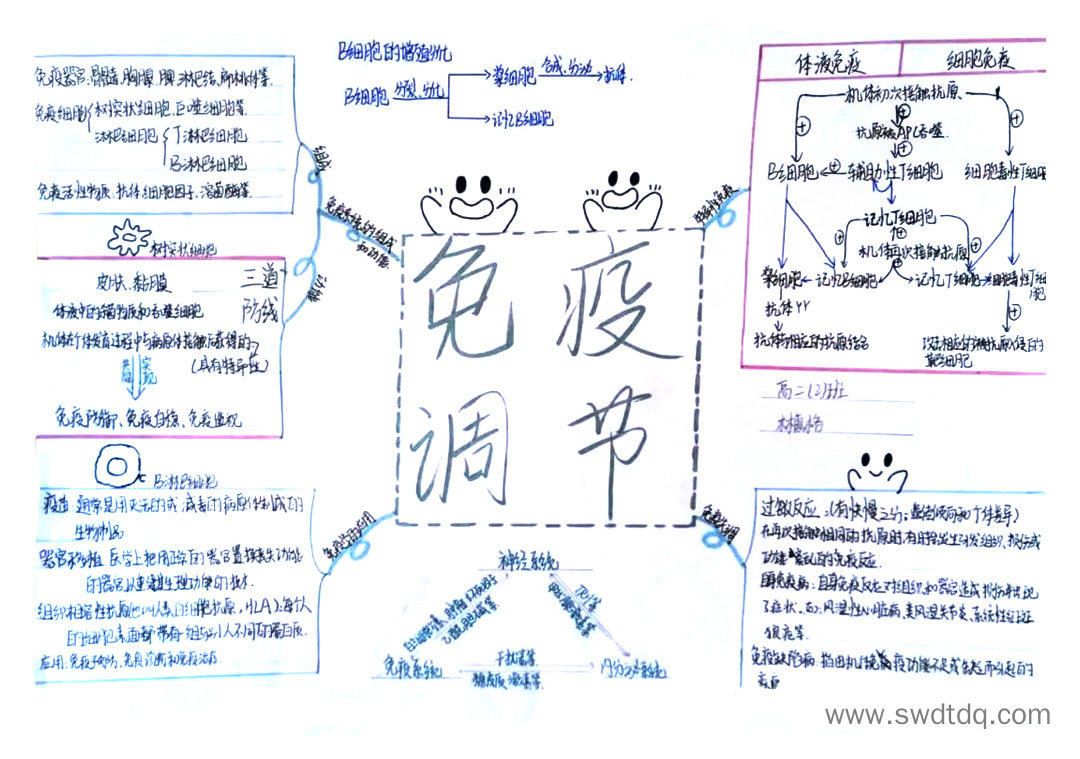 免疫调节
免疫系统的组成和功能
组成
免疫器官:骨髓、胸腺、脾、淋巴结、扁桃体等.
免疫细胞
树突状细胞、巨噬细胞等
淋巴细胞
T淋巴细胞
B淋巴细胞
免疫活性物质:抗体、细胞因子、溶菌酶等.
树突状细胞
三道防线
皮肤、黏膜
体液中的杀菌物质和吞噬细胞
(具有特异性)
实现
免疫防御、免疫自稳、免疫监视
B淋巴细胞
B细胞的增殖分化
B细胞
分裂、分化
浆细胞
合成、分泌
抗体.
记忆B细胞
特异性免疫
体液免疫
细胞免疫
机体初次接触抗原
抗原被APC吞噬.
B细胞
辅助性T细胞
细胞毒性T细胞
记忆T细胞
机体再次接触抗原
浆细胞
记忆B细胞
记忆T细胞
细胞毒性T细胞
抗体
抗体与相应的抗原结合
靶细胞
高二(2)班
免疫学的应用
疫苗:通常是用灭活的或减毒的病原体制成的
生物制品
器官移植:医学上把用正常的器官置换丧失功能
的器官以重建其生理功能的技术.
组织相容性抗原也叫人类白细胞抗原,HLA):每个人
的细胞表面都带有一组与别人不同的蛋白质.
应用:免疫预防、免疫诊断和免疫治疗
神经系统
免疫系统
内分泌系统
干扰素等
糖皮质激素等
免疫失调
过敏反应:(有快慢之分;
在再次接触相同的抗原时,有时会发生引发组织损伤或
功能紊乱的免疫反应.
自身免疫病:自身免疫反应对组织和器官造成损伤并出现
了症状.如:风湿性心脏病、类风湿关节炎、系统性红斑
狼疮等.
免疫缺陷病:指由机体免疫功能不足或缺乏而引起的
疾病
www.swdtdq.com